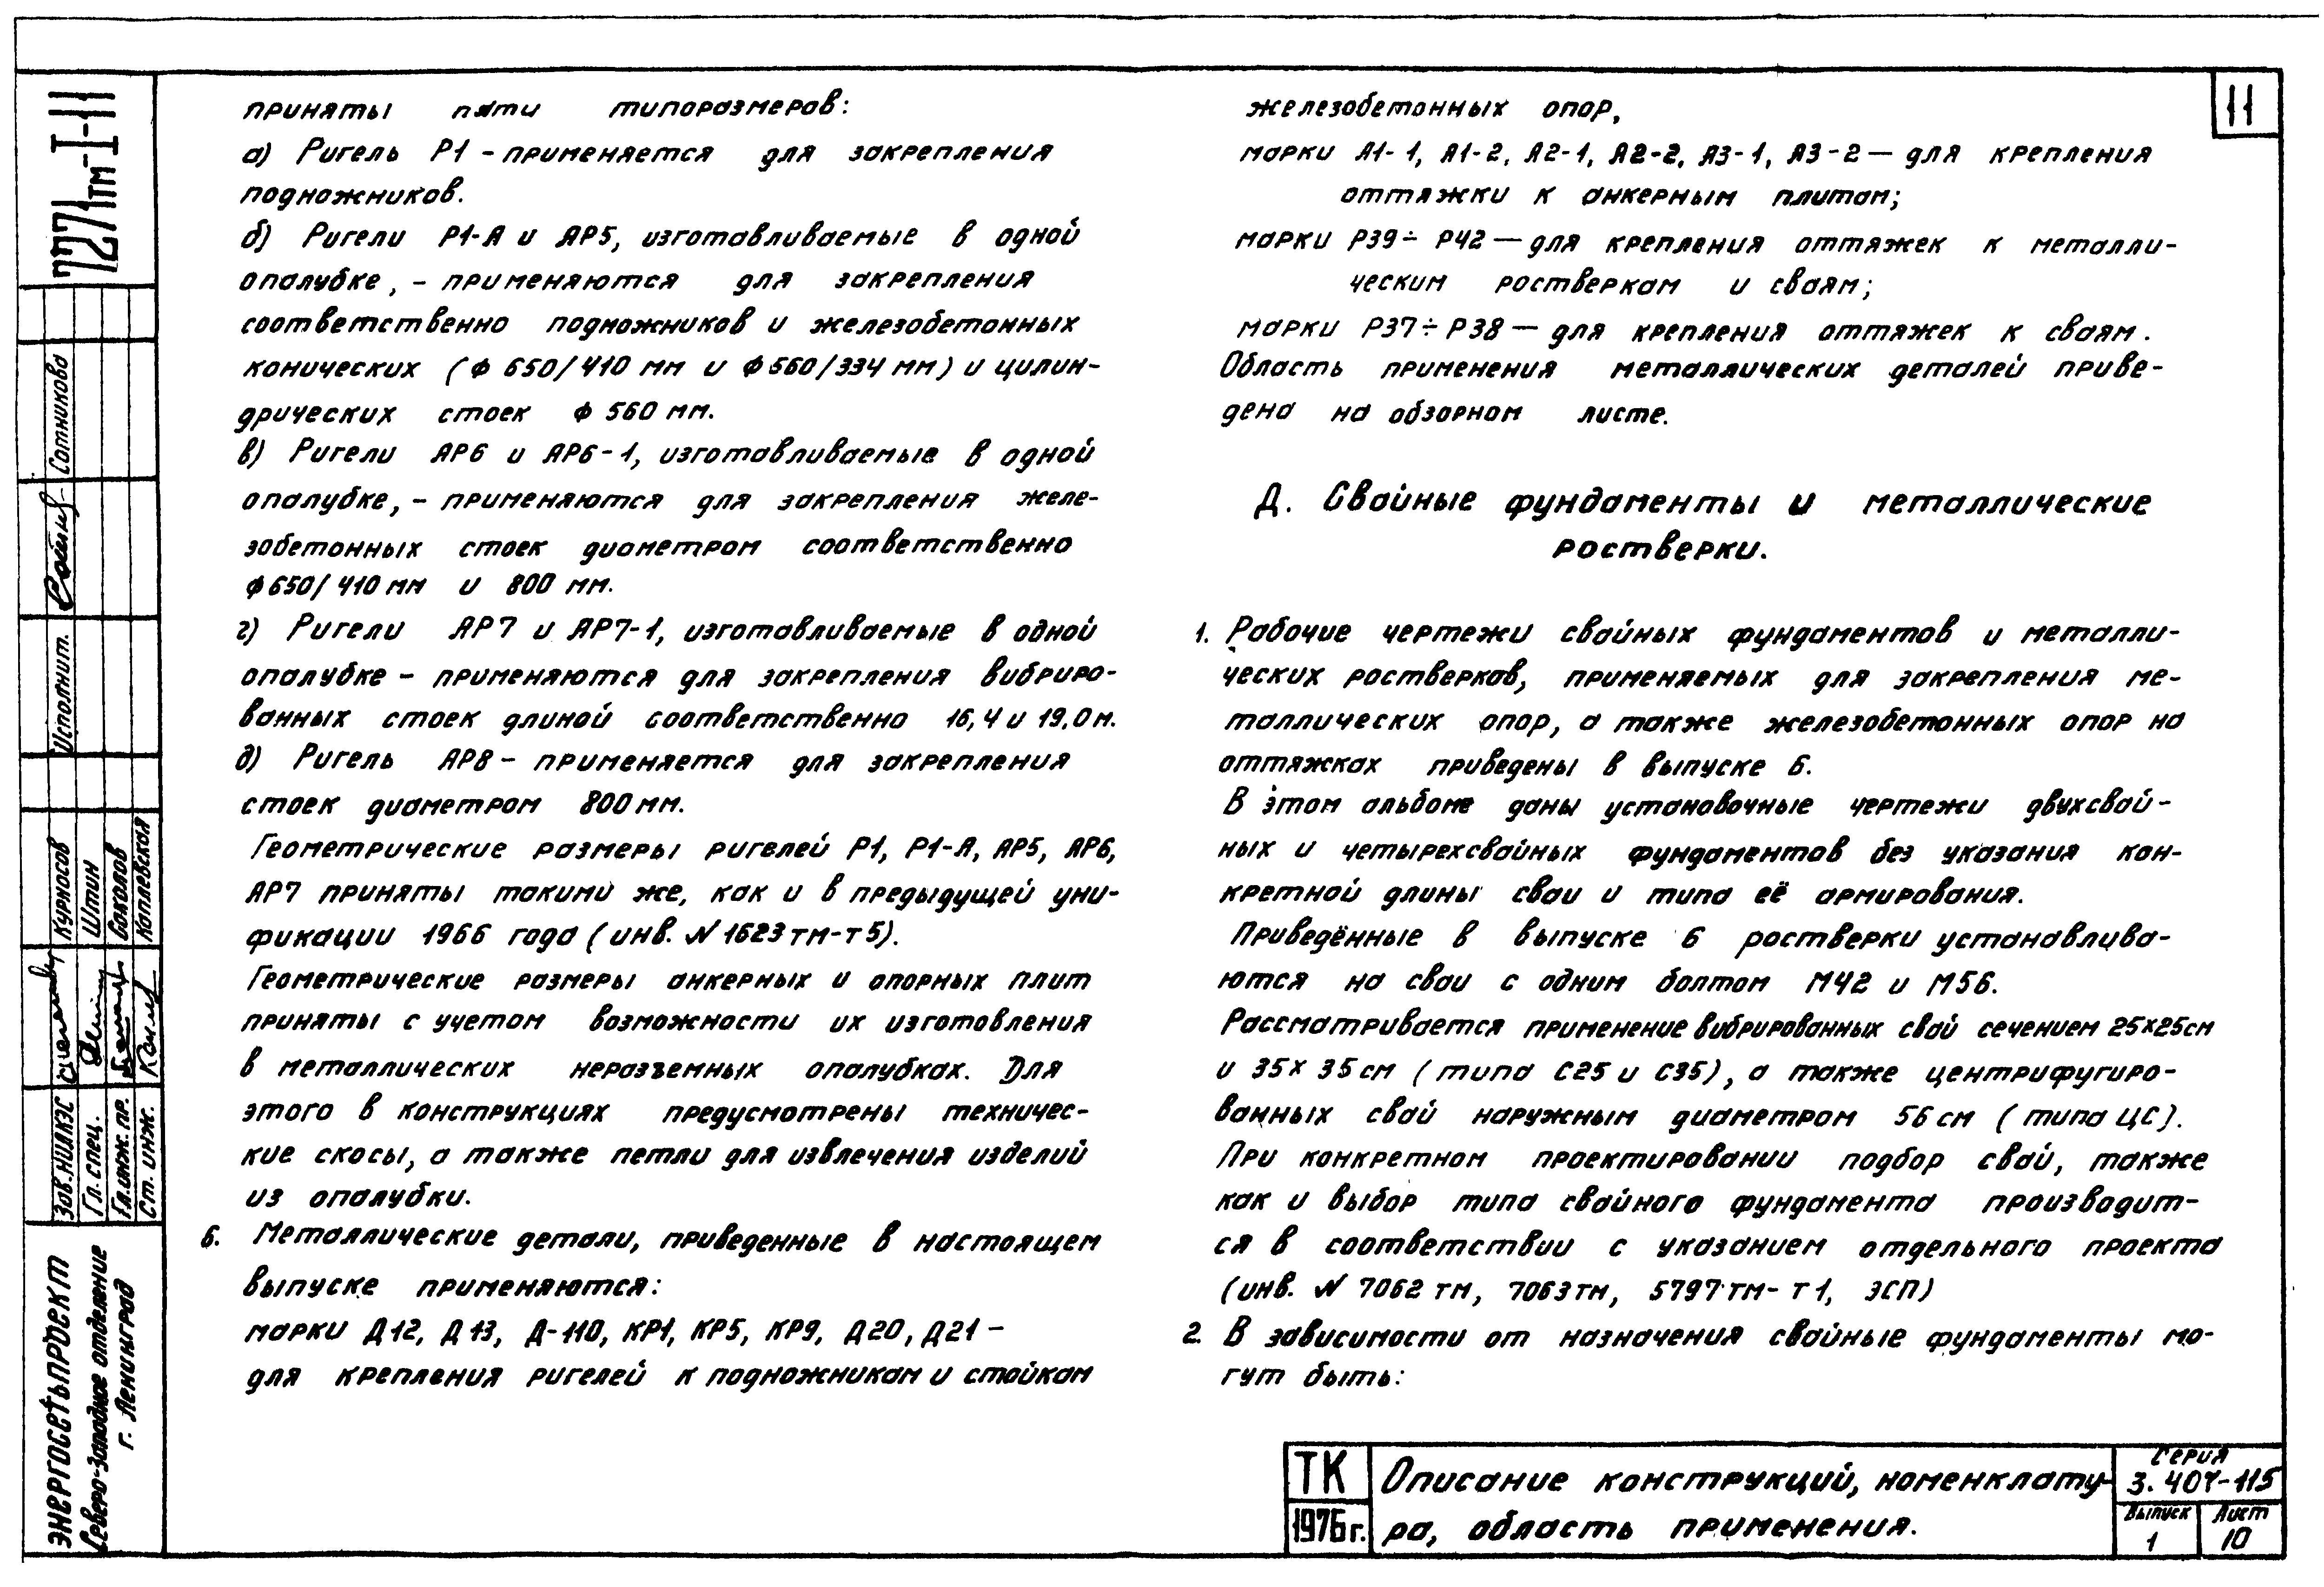 приняты пяти типоразмеров:
а) Ригель Р1 - применяется для закрепления
подножников.
б) Ригели Р1-А и АР5, изготавливаемые в одной
опалубке, - применяются для закрепления
соответственно подножников и железобетонных
конических (ф 650/410 мм и ф 560/334 мм) и цилин-
дрических стоек ф 560 мм.
в) Ригели АР6 и АР6-1, изготавливаемые в одной
опалубке, - применяются для закрепления желе-
зобетонных стоек диаметром соответственно
ф 650/410 мм и 800 мм.
г) Ригели АР7 и АР7-1, изготавливаемые в одной
опалубке - применяются для закрепления вибриро-
ванных стоек длиной соответственно 16,4 и 19,0 м.
д) Ригель АР8 - применяется для закрепления
стоек диаметром 800 мм.
Геометрические размеры ригелей Р1, Р1-А, АР5, АР6,
АР7 приняты такими же, как и в предыдущей уни-
фикации 1966 года (инв. N 1623 тм-т5).
Геометрические размеры анкерных и опорных плит
приняты с учетом возможности их изготовления
в металлических неразъемных опалубках. Для
этого в конструкциях предусмотрены техничес-
кие скосы, а также петли для извлечения изделий
из опалубки.
6. Металлические детали, приведенные в настоящем
выпуске применяются:
марки Д12, Д13, Д-110, КР1, КР5, КР9, Д20, Д21 -
для крепления ригелей к подножникам и стойкам
железобетонных опор,
марки А1-1, А1-2, А2-1, А2-2, А3-1, А3-2 — для крепления
оттяжки к анкерным плитам;
марки Р39 ÷ Р42 — для крепления оттяжек к металли-
ческим ростверкам и сваям;
марки Р37 ÷ Р38 — для крепления оттяжек к сваям.
Область применения металлических деталей приве-
дена на обзорном листе.
Д. Свайные фундаменты и металлические
ростверки.
1. Рабочие чертежи свайных фундаментов и металли-
ческих ростверков, применяемых для закрепления ме-
таллических опор, а также железобетонных опор на
оттяжках приведены в выпуске 6.
В этом альбоме даны установочные чертежи двухсвай-
ных и четырехсвайных фундаментов без указания кон-
кретной длины сваи и типа её армирования.
Приведённые в выпуске 6 ростверки устанавлива-
ются на сваи с одним болтом М42 и М56.
Рассматривается применение вибрированных свай сечением 25х25см
и 35х35 см (типа С25 и С35), а также центрифугиро-
ванных свай наружным диаметром 56 см (типа ЦС).
При конкретном проектировании подбор свай, также
как и выбор типа свайного фундамента производит-
ся в соответствии с указанием отдельного проекта
(инв. N 7062 тм, 7063тм, 5797тм-т1, ЭСП)
2. В зависимости от назначения свайные фундаменты мо-
гут быть:
11
7271тм-I-11
Сотникова
Исполнит.
Курносов
Штин
Соколов
Каплевская
Зав.НИЛКЭС
Гл. спец.
Гл.инж.пр.
Ст. инж.
Энергосетьпроект
Северо-западное отделение
г. Ленинград
ТК
1976 г.
Описание конструкций, номенклату-
ра, область применения.
Серия
3.407-115
Выпуск
1
Лист
10